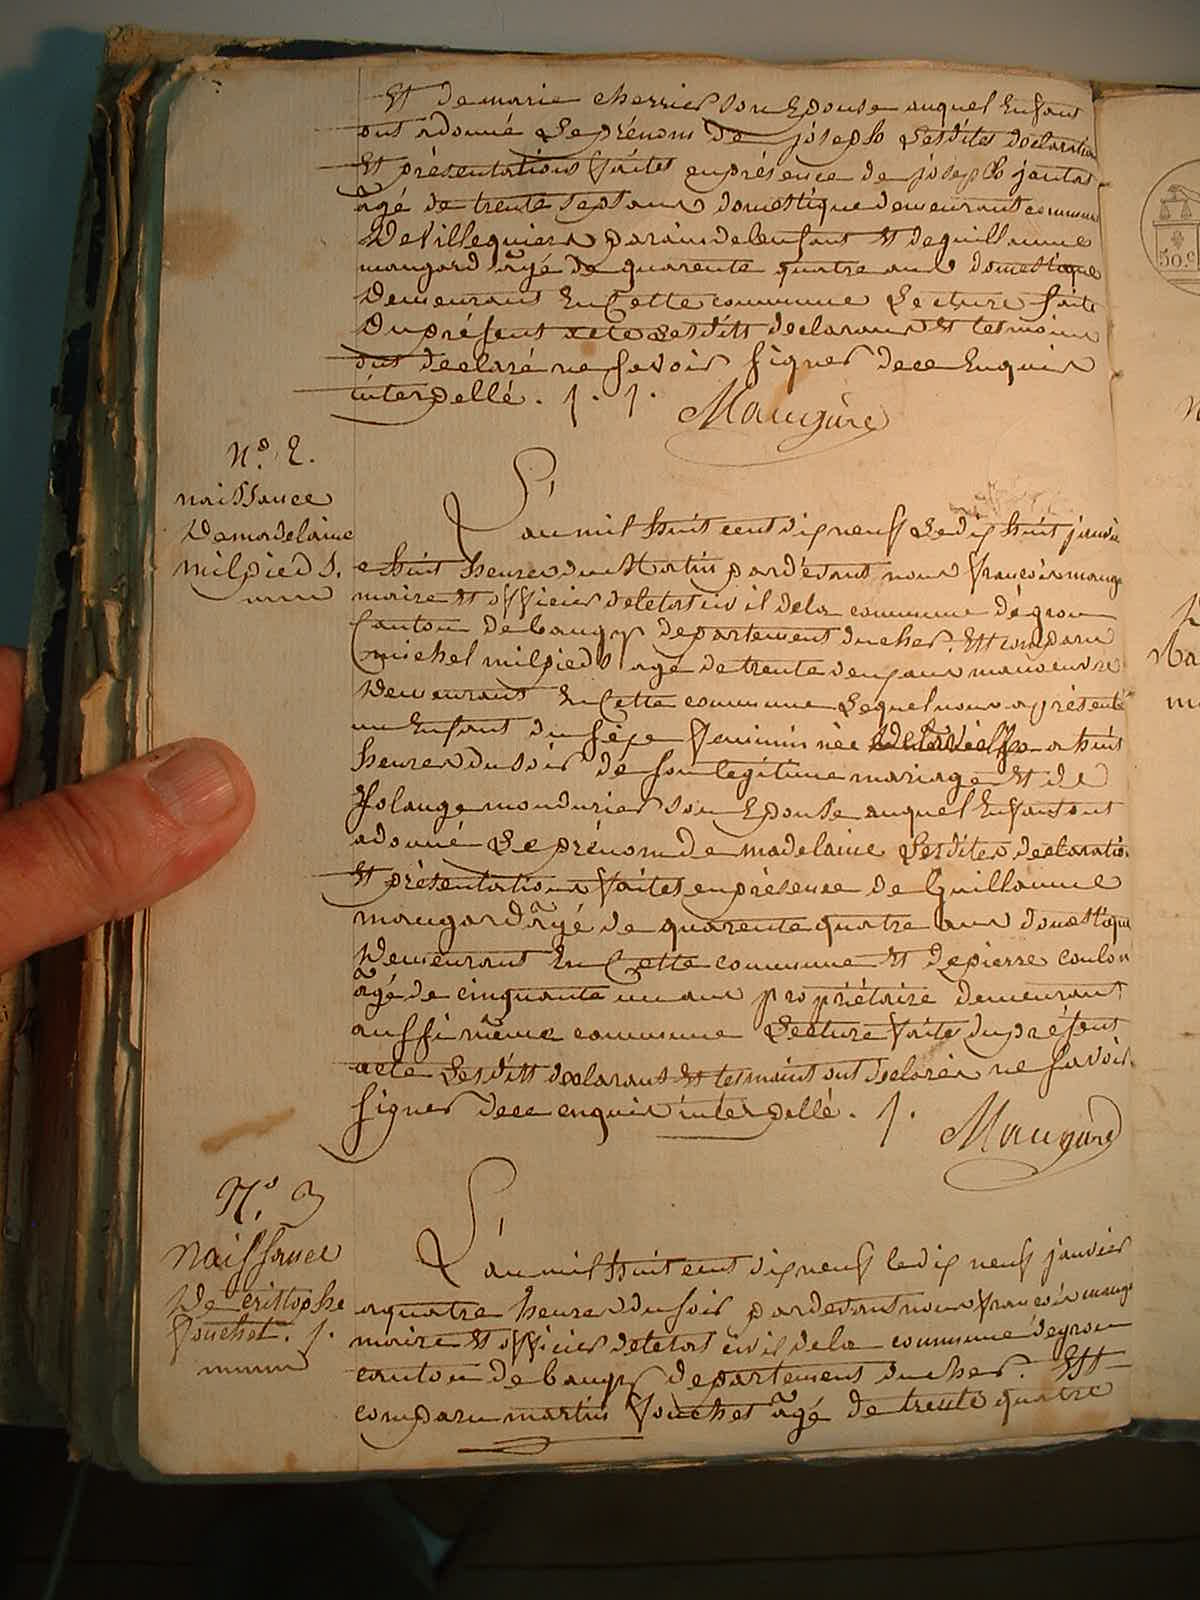 Et de marie cherrier son Epouse auquel Enfant
ont adonné Le prénom de joseph Lesdites declaration
Et présentations faites enprésence de joseph jautas
âgé de trente sept ans domestique demeurant commune
De Villequiers parain del'enfant Et de guillaume
maugard âgé de quarente quatre ans domestique
Demeurant En Cette commune Lecture faite
Du présent acte Lesditt declarant Et tesmoins
ont declaré ne savoir signer dece Enquis
interpellé . /. /.
Maugère
N.° 2.
naissance
De madelaine
milpieds.
L'
an mil huit cent dix neuf Le dix huit janvie
a huit heures du Matin pardevant nous francois mauge
maire Et officier deletat civil dela commune de grou
Canton de baugy departement du cher. Est comparu
michel milpieds agé de trente deux ans manoeuvre
Demeurant En Cette commune Lequel nous a présenté
un Enfant du sexe feminin née a huit
heures du soir de son legitime mariage Et de
solange mondurier son Epouse auquel Enfant ont
adonné Le prénom de madelaine Lesdites declaratio
Et présentations faites enprésence de Guillaume
maugard âgé de quarente quatre ans domestique
Demeurant En Cette commune Et de pierre coulon
âgé de cinquante un ans propriétaire demeurant
aussi même commune Lecture faite du présent
acte Lesditt declarant Et tesmoint ont declarée ne savoir
signer dece enquis interpellé . /.
Maugère
N.° 3
Naissance
De cristophe
fouchet. /.
L'
an mil huit cent dix neuf le dix neuf janvier
a quatre heures du soir pardevant nous francois mauge
maire Et officier deletat civil dela commune de grou
canton de baugy departement du cher. Est
comparu martin fouchet âgé de trente quatre
50.c